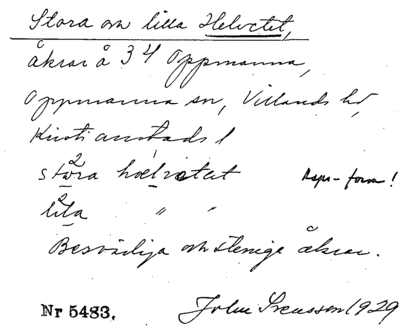 Stora och lilla Helvetet,
åkrar å 34 Oppmanna,
Oppmanna sn, Villands hd,
Kristianstads l
2
stora hælvetet Rspr-form!
2
lila " "
Besvärliga och steniga åkrar.
Nr 5483. John Svensson 1929